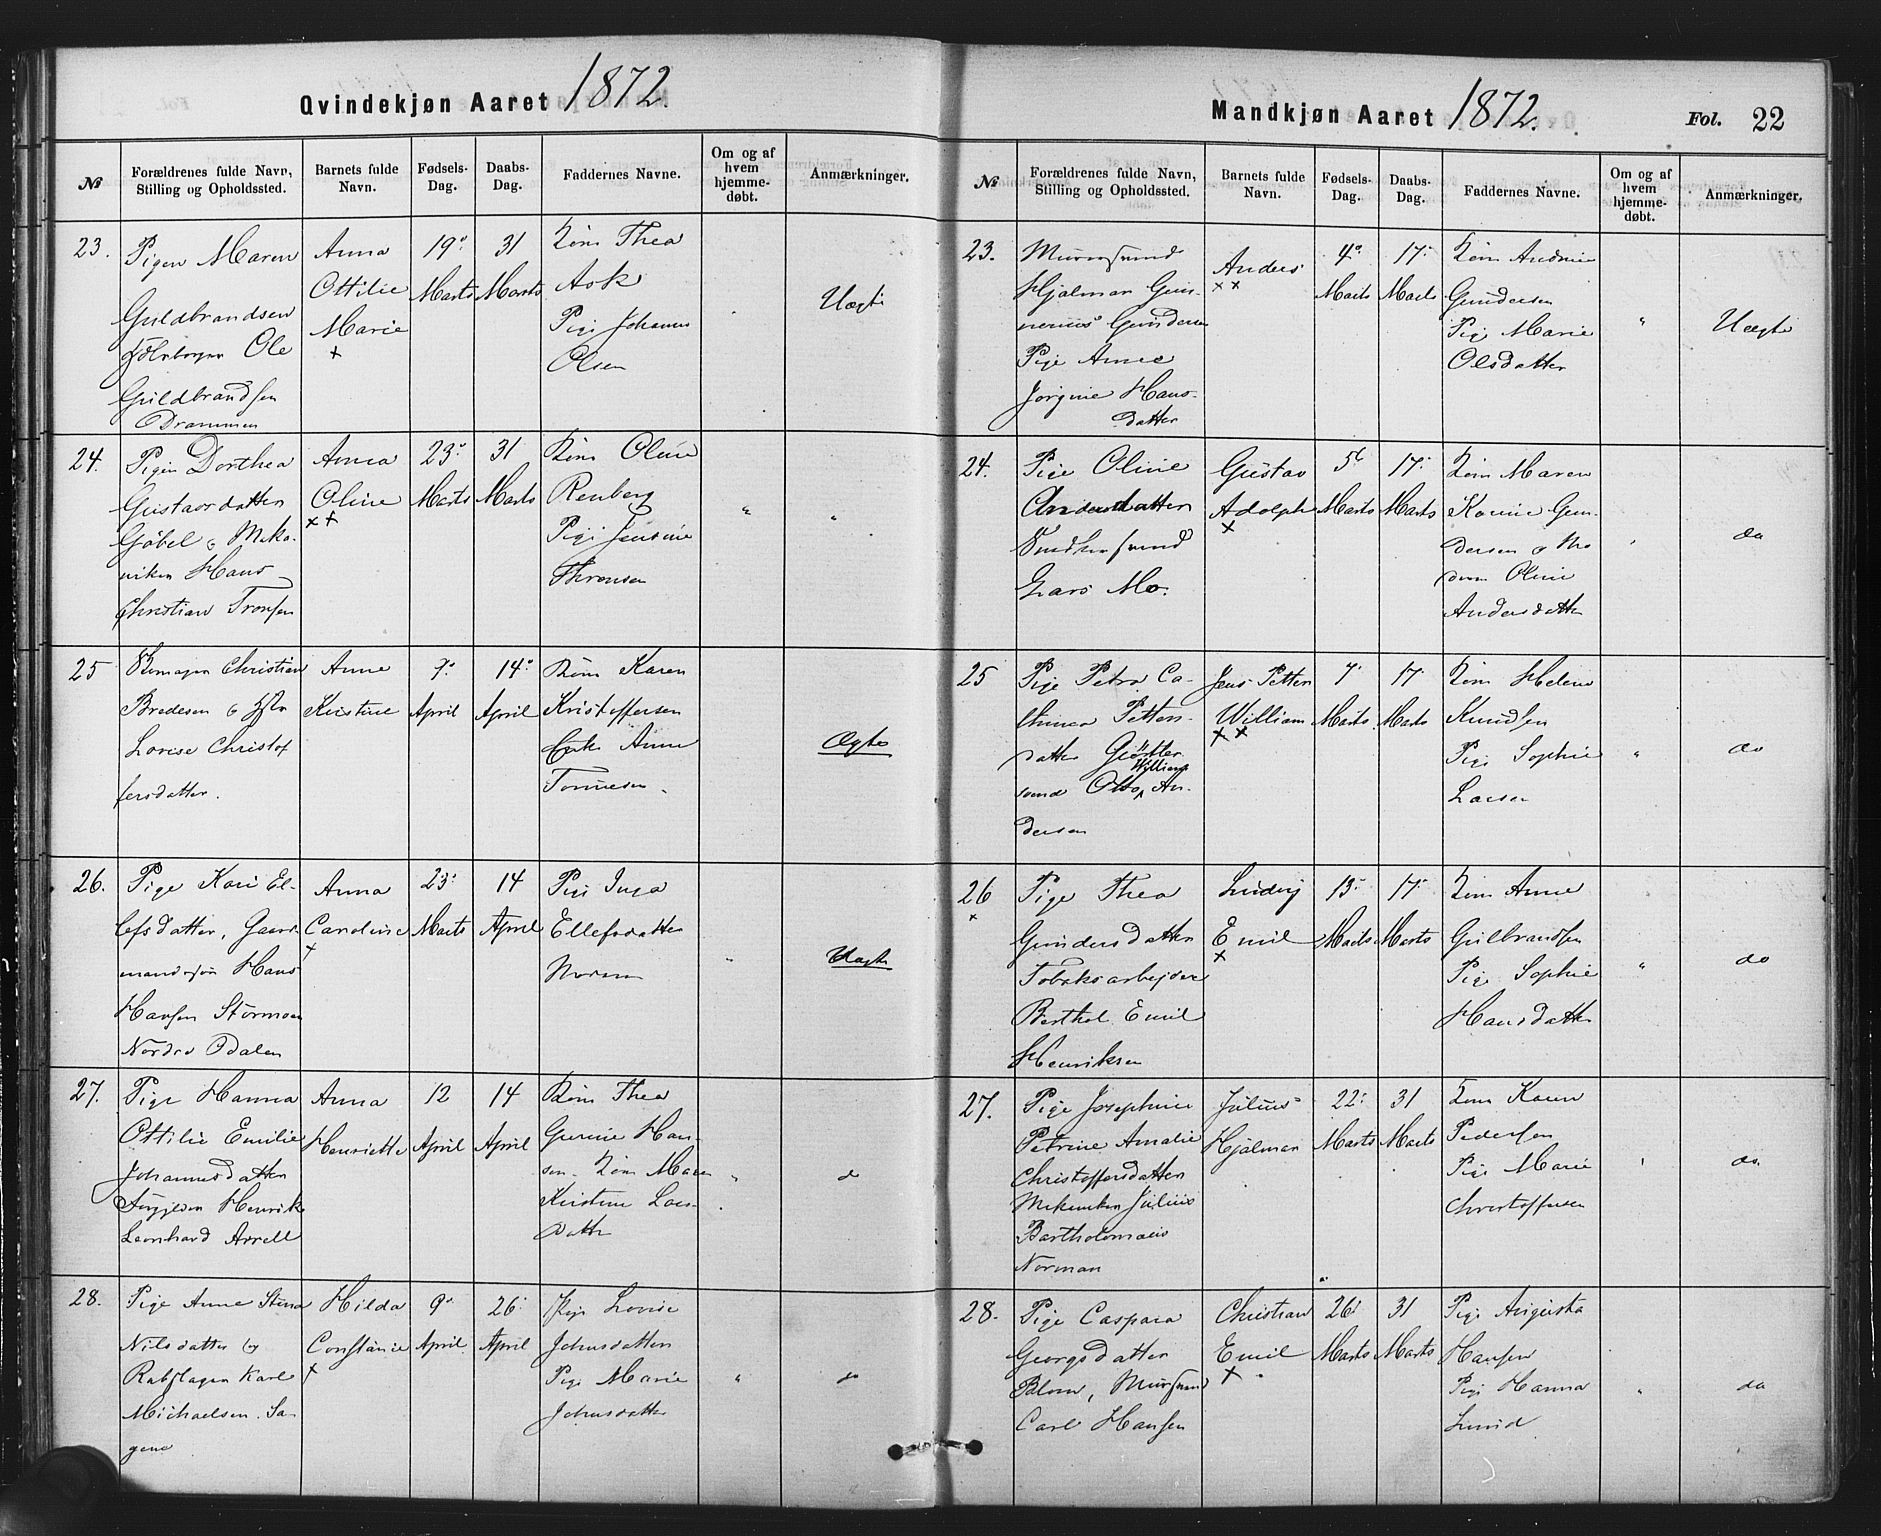 Qvindekjøn Aaret 1872.
№
Forældrenes fulde Navn,
Stilling og Opholdssted.
Barnets fulde
Navn.
Fødsels-
Dag.
Daabs-
Dag.
Faddernes Navne.
Om og af
hvem
hjemme-
døbt.
Anmærkninger.
23.
Pigen Maren
Guldbrandsen
Ole
Guldbrandsen
Drammen
Anna
Ottilie
Marie
×
19
Marts
31
Marts
Kone Thea
Ask
Pige Johanne
Olsen
Uægte
24.
Pigen Dorthea
Gustavsdatter
Gøbel og Meka-
niken Hans
Christian Tronsen
Anna
Oline
××
23
Marts
31
Marts
Kone Oline
Renberg
Pige Jensine
Thronsen
"
"
25
Christian
Bredesen og
Lovise Christof
fersdatter.
Anne
Kristine
7
April
14
April
Kone Karen
Kristoffersen
Enke Anne
Tonnesen
Ægte
26.
Pige Kari El-
lefsdatter, Gaard-
mandssøn Hans
Hansen Stormoen
Nordre Odalen
Anna
Caroline
×
23
Marts
14
April
Pige Inga
Ellefsdatter
Uægte
27.
Pige Hanna
Ottilie Emilie
Johannesdatter
Henrik
Leonhard Arrell
Anna
Henriette
12
April
14
April
Kone Thea
Gurine Han-
sen. Kone Maren
Kristine Lars-
datter
"
do
28.
Pige Anne Stina
Nilsdatter og
Karl
Michaelsen. Sa-
gene
Hilda
Constance
×
9
April
26
April
Pige Lovise
Johnsdatter
Pige Marie
Johnsdatter
"
do
Mandkjøn Aaret 1872.
Fol. 22
№
Forældrenes fulde Navn,
Stilling og Opholdssted.
Barnets fulde
Navn.
Fødsels-
Dag.
Daabs-
Dag.
Faddernes Navne.
Om og af
hvem
hjemme-
døbt.
Anmærkninger.
23.
Murersvend
Hjalmar Gun-
nerius Gundersen
Pige Anne
Jørgine Hans-
datter
Anders
××
4
Marts
17
Marts
Kone Andrine
Gundersen
Pige Marie
Olsdatter
"
Uægte
24.
Pige Oline
Andersdatter
Snedkersvend
Lars Mo.
Gustav
Adolph
×
5
Marts
17
Marts
Kone Maren
Karine Gun-
dersen og Ma
dam Oline
Andersdatter
do
25
Pige Petra Ca-
thinca Petters-
datter Gjørtler
svend Otto William An-
dersen
Jens Petter
William
××
7
Marts
17
Marts
Kone Helene
Knudsen
Pige Sophie
Larsen
"
do
26
×
Pige Thea
Gundersdatter
Tobaksarbejder
Berthel Emil
Henriksen
Ludvig
Emil
×
13
Marts
17
Marts
Kone Anne
Gulbrandsen
Pige Sophie
Hansdatter
"
do
27.
Pige Josephine
Petrine Amalie
Christoffersdatter
Mekaniken Julius
Bartholomæus
Norman
Julius
Hjalmar
22
Marts
31
Marts
Kone Karen
Pedersen
Pige Marie
Christoffersen
do.
28.
Pige Caspara
Georgsdatter
Blom, Mursvend
Carl Hansen
Christian
Emil
×
26
Marts
31
Marts
Pige Augusta
Hansen
Pige Hanna
Lund
"
do